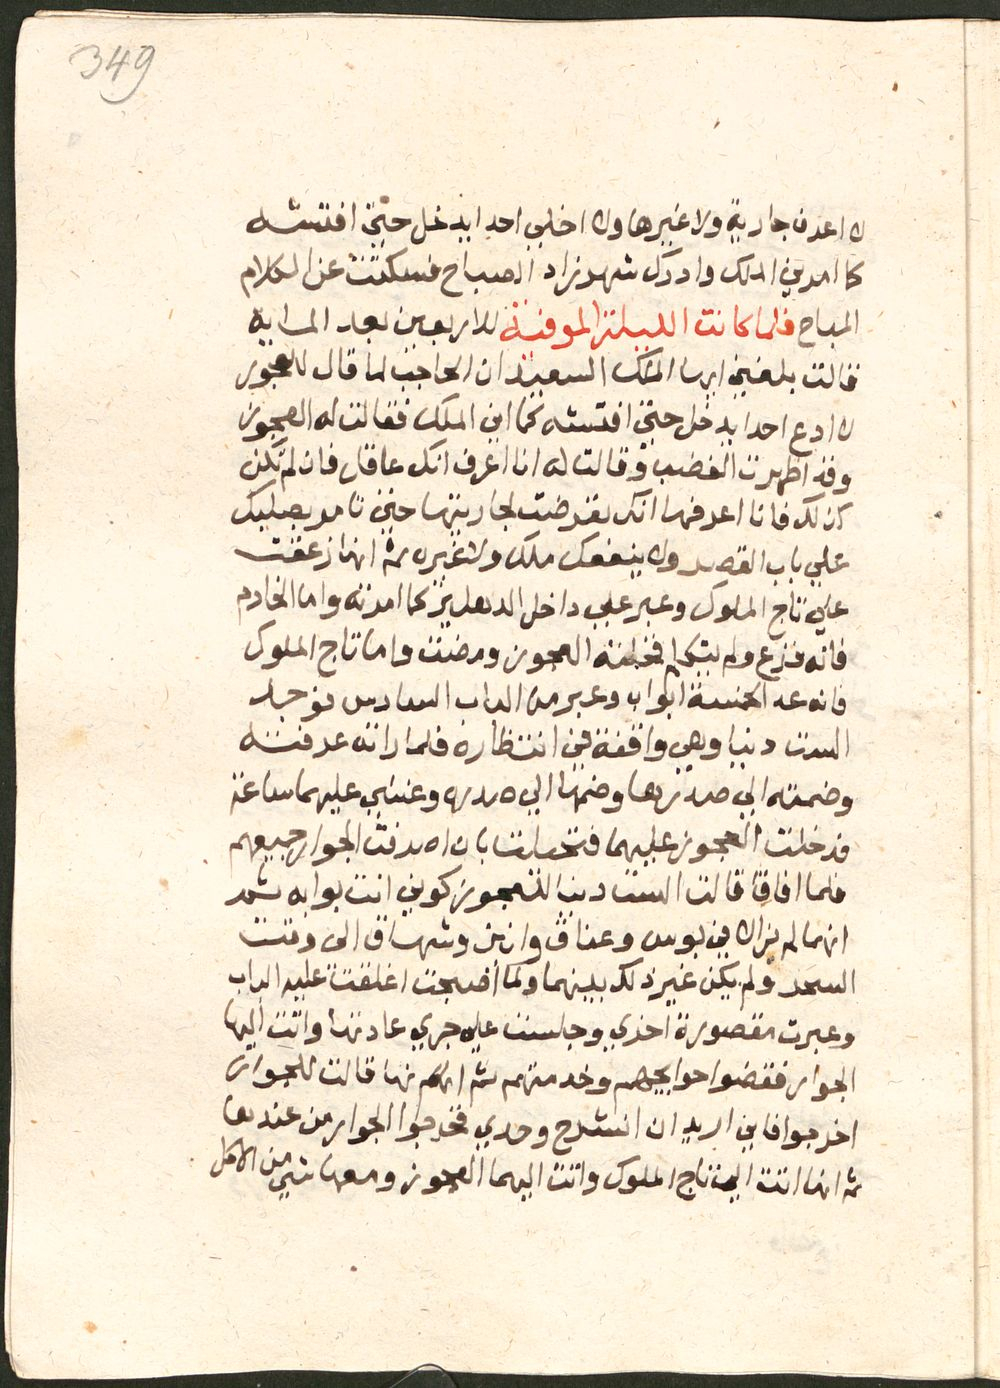 349
لا اعرف جارية ولا غيرها ولا اخلي احدا يدخل حتي افتشه
كما امرني الملك وادرك شهرزاد الصباح فسكتت عن الكلام
المباح فلما كانت الليلة الموفية للاربعين بعد الماية
قالت بلغني ايها الملك السعيد ان الحاجب لما قال للعجوز
لا ادع احدا يدخل حتي افتشه كما امرني الملك فقالت له العجوز
وقد اظهرت الغضب وقالت له انا اعرف انك عاقل فان لم تكن
كذلك فانا اعرفها انك تعرضت لجاريتها حتي تامر بصلبك
علي باب القصر ولا ينفعك ملك ولا غيره ثم انها زعقت
علي تاج الملوك وعبر علي داخل الدهليز كما امرته واما الخادم
فانه فزع ولم يتكلم فخلته العجوز ومضت واما تاج الملوك
فانه عد الخمسة ابواب وعبر من الباب السادس فوجد
الست دنيا وهي واقفة في انتظاره فلما راته عرفته
وضمته الي صدرها وضمها الي صدره وغشي عليهما ساعة
فدخلت العجوز عليهما فتحيلت بان صرفت الجوار جميعهم
فلما افاقا قالت الست دنيا للعجوز كوني انت بوابه ثم
انهما لم يزالا في بوس وعناق وانين وشهاق الى وقت
السحر ولم يكن غير ذلك بينهما ولما أصبحت اغلقت عليه الباب
وعبرت مقصورة اخري وجلست علي جري عادتها واتت اليها
الجوار فقضوا حوايجهم وخدمتهم ثم انهم نها قالت للجوار
اخرجوا فاني اريد ان انشرح وحدي فخرجوا الجوار من عندها
ثم انها اتت الي تاج الملوك واتت اليهما العجوز ومعها شي من الاكل